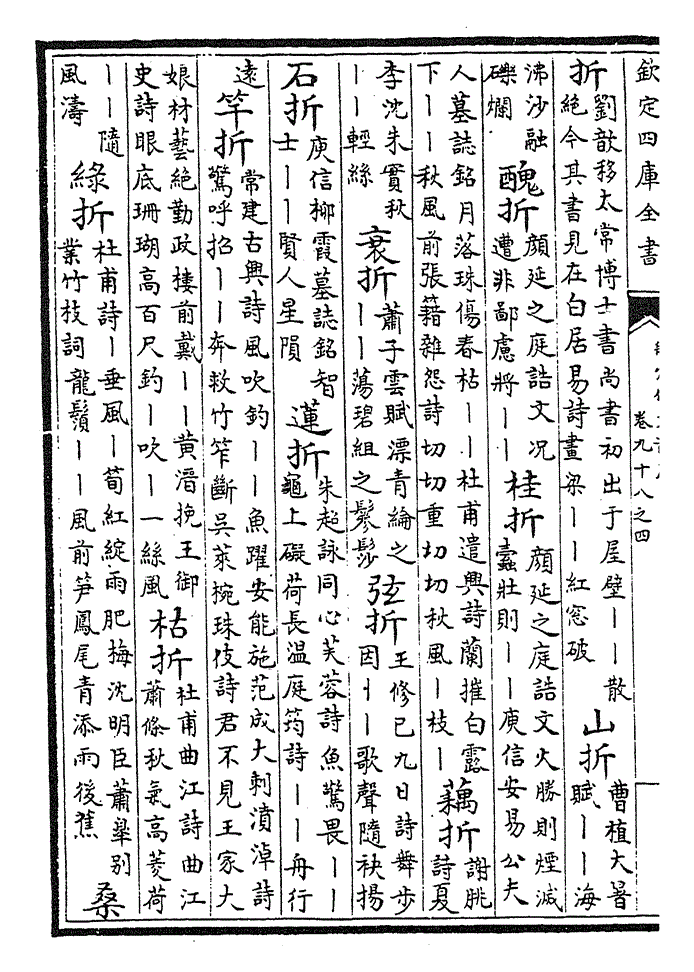 欽定四庫全書
卷九十八之四
折 劉歆移太常博士書尚書初出于屋壁丨丨散絕今其書見在白居易詩畫梁丨丨紅窓破 山折 曹植大暑賦丨丨海
沸沙融礫爛 醜折 顔延之庭誥文况遭非鄙慮將丨丨 桂折 顔延之庭誥文火勝則煙滅蠹壯則丨丨庾信安昜公夫
人墓誌銘月落珠傷春枯丨丨杜甫遣興詩蘭摧白露下丨丨秋風前張籍雜怨詩切切重切切秋風丨枝丨 藕折 謝朓詩夏
李沈朱實秋丨丨輕絲 衰折 蕭子雲賦漂青綸之丨丨蕩碧組之鬖髿 弦折 王修已九日詩舞步因丨丨歌聲隨袂揚
石折 庾信柳霞墓誌銘智士丨丨賢人星隕 蓮折 朱超詠同心芙蓉詩魚驚畏丨丨龜上礙荷長温庭筠詩丨丨舟行
遠 竿折 常建古興詩風吹釣丨丨魚躍安能施范成大刺濆淖詩驚呼招丨丨奔救竹笮斷吳萊椀珠伎詩君不見王家大
娘材藝絕勤政樓前戴丨丨黄溍挽王御史詩眼底珊瑚高百尺釣丨吹丨一絲風 枯折 杜甫曲江詩曲江蕭條秋氣高菱荷
丨丨隨風濤 綠折 杜甫詩丨垂風丨筍紅綻雨肥梅沈明臣蕭皐别業竹枝詞龍鬚丨丨風前笋鳳尾青添雨後蕉 桑